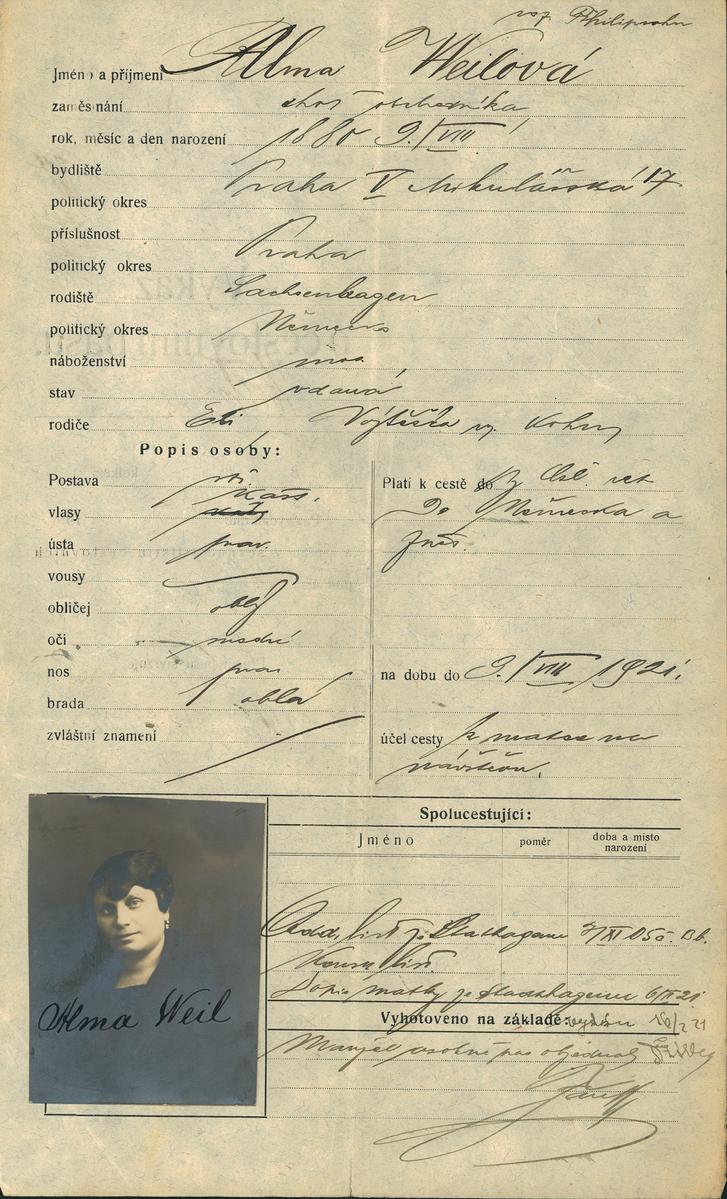 roz. Philipsohn
Jméno a příjmení Alma Weilová
zaměstnání choť obchodníka
rok, měsíc a den narození 1880 9./VIII
bydliště Praha V Mikulášská 17
politický okres
příslušnost
Praha
politický okres
rodiště Sachsenhagen
politický okres Německo
náboženství mos.
stav vdaná
rodiče Eli Vojtěška roz. Kohn
Popis osoby:
Postava stř.
vlasy kašt.
ústa prav.
vousy
obličej oblý
oči modré
nos prav.
brada oblá
zvláštní znamení
Platí k cestě do
Do Německa a
zpět.
na dobu do 9./VIII 1921.
účel cesty k matce na
návštěvu.
Alma Weil
Spolucestující:
Jméno poměr doba a místo narození
list z Stadthagenu
list.
Dopis matky ze Stadthagenu 21
Vyhotoveno na základě:
Manžel osobně pas objednal